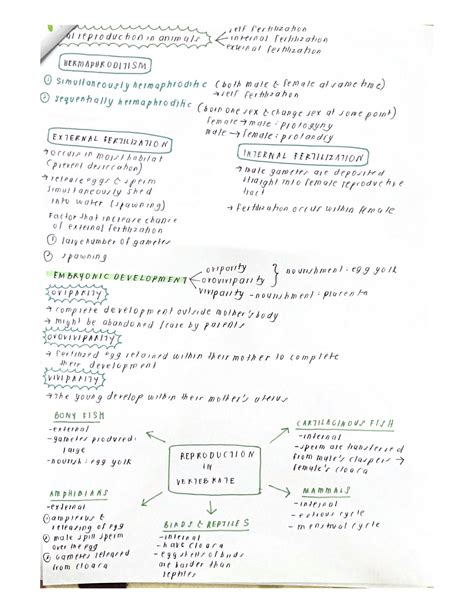 al reproduction in animals
self fertilization
internal fertilization
external fertilization
HERMAPHRODITISM
① simultaneously hermaphroditic (both male & female at same time)
→ self fertilization
② sequentially hermaphroditic (born one sex & change sex at some point)
female → male : protogyny
male → female : protandry
EXTERNAL FERTILIZATION
→ occurs in moist habitat
(prevent desiccation)
→ release eggs & sperm
simultaneously shed
into water (spawning)
Factor that increase chance
of external fertilization
① large number of gametes
② spawning
INTERNAL FERTILIZATION
→ male gametes are deposited
straight into female reproductive
tract
→ fertilization occur within female
EMBRYONIC DEVELOPMENT
oviparity
ovoviviparity
nourishment : egg yolk
viviparity - nourishment : placenta
OVIPARITY
→ complete development outside mother's body
→ might be abandoned / care by parents
OVOVIVIPARITY
→ fertilized egg retained within their mother to complete
their development
VIVIPARITY
→ The young develop within their mother's uterus
BONY FISH
- external
- gametes produced :
large
- nourish : egg yolk
CARTILAGINOUS FISH
- internal
- sperm are transferred
from male's claspers →
female's cloaca
REPRODUCTION
IN
VERTEBRATE
AMPHIBIANS
- external
① amplexus &
releasing of egg
② male spill sperm
over the egg
③ Gametes released
from cloaca
BIRDS & REPTILES
- internal
- have cloaca
- egg shells of birds
are harder than
reptiles
MAMMALS
- internal
- estrous cycle
- menstrual cycle